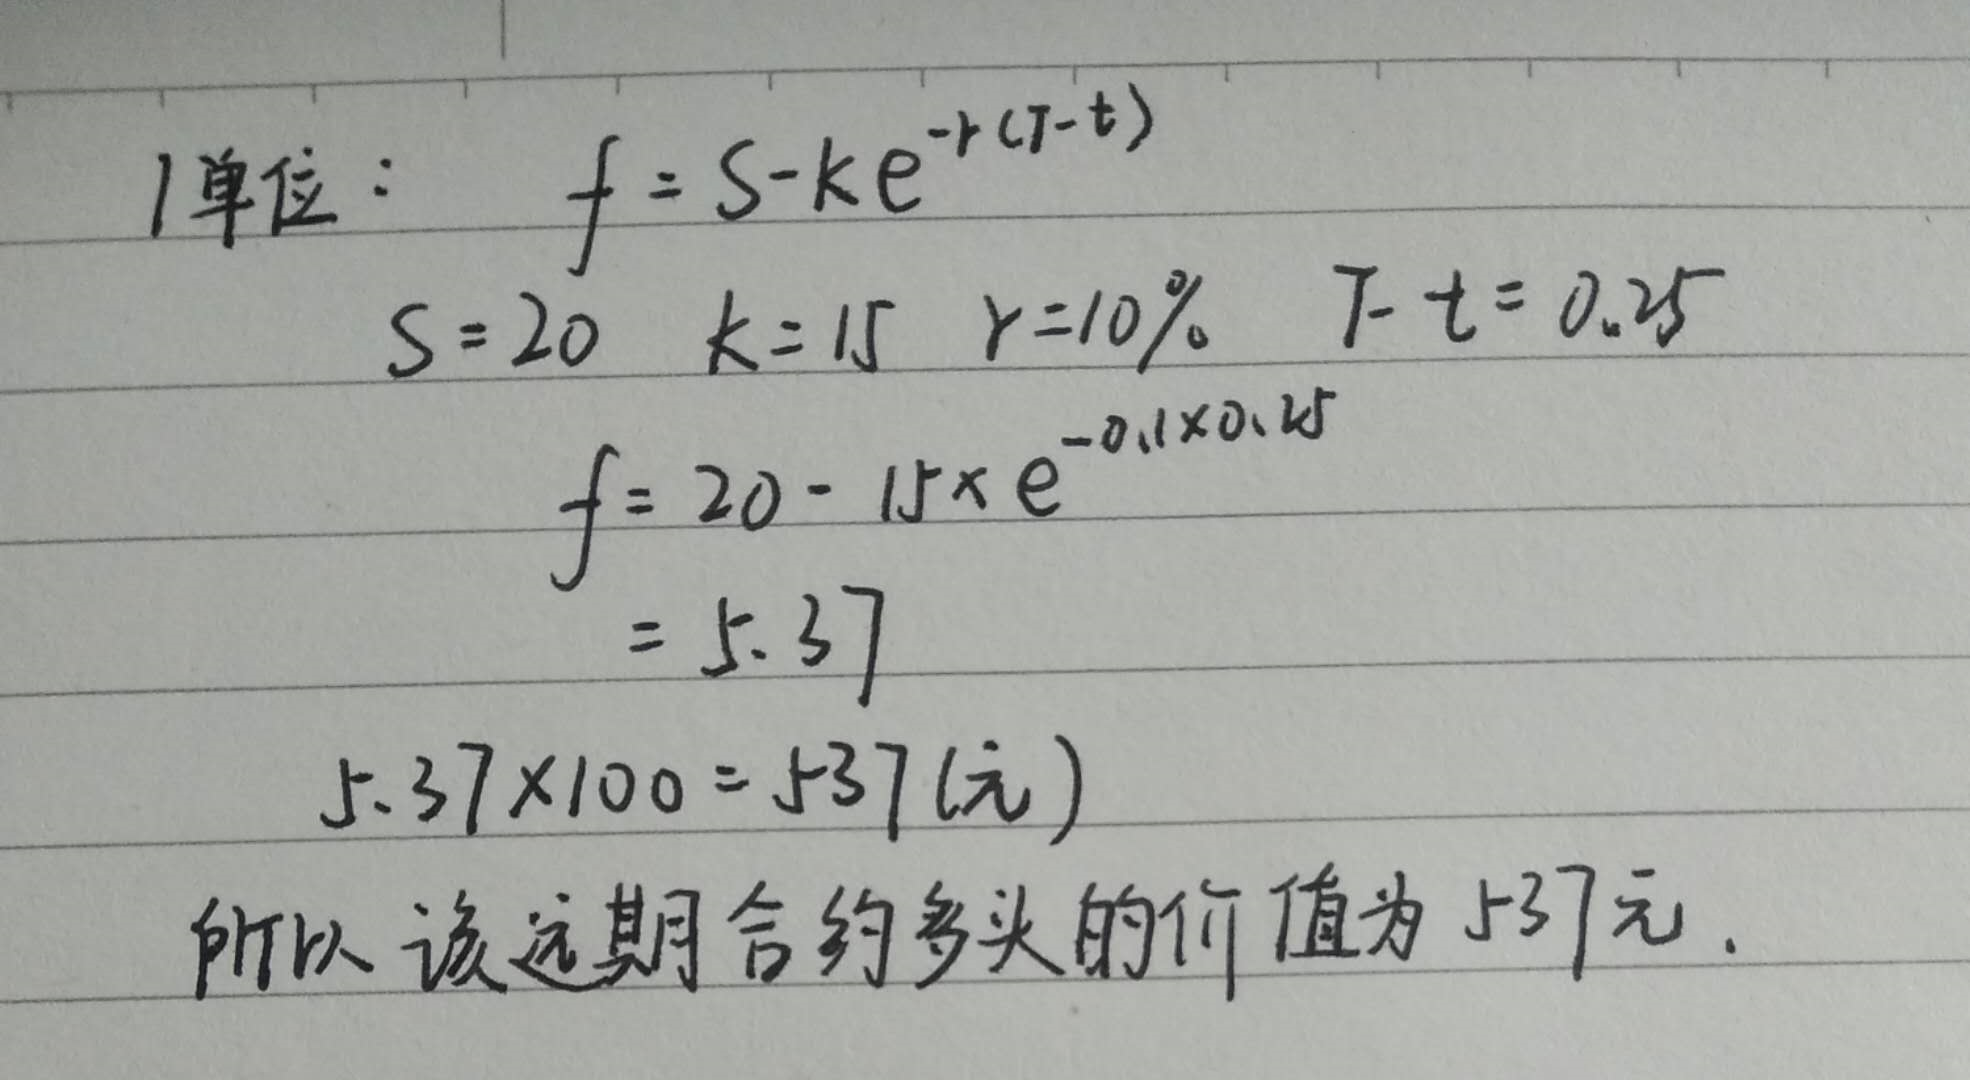 1单位： f = S - ke^{-r(T-t)}
S = 20 k = 15 r = 10% T - t = 0.25
f = 20 - 15 × e^{-0.1×0.25}
= 5.37
5.37 × 100 = 537 (元)
所以该远期合约多头的价值为 537元.